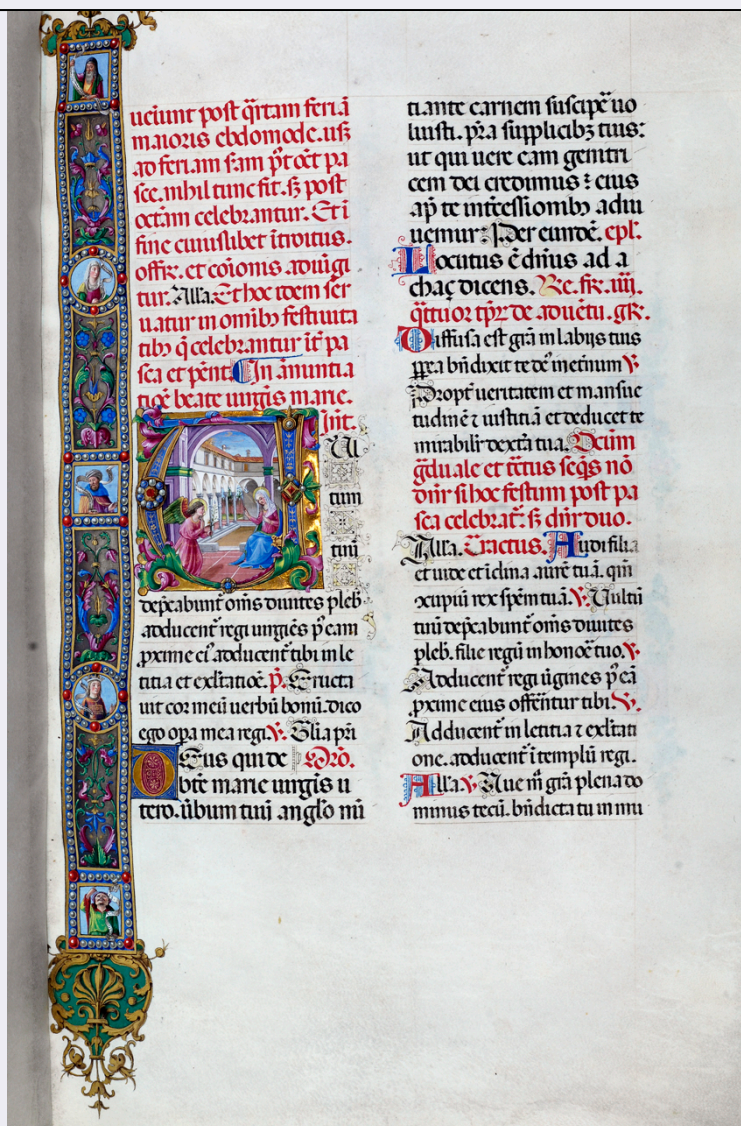 ueniunt post q̄rtam feriā
maioris ebdomode. usq̄
ad feriam sc̄am p̄t oct̄ pa
sce. nihil tunc fit. sȝ post
octām celebrantur. Et ī
fine cuiuslibet ītroitus.
offīr. et cōīonis adiūgi
tur. Alla. Et hoc idem ser
uatur in omībȝ festiuita
tibȝ q̄ celebrantur īt̄ pa
sca et pent̄. In ānuntia
tiōe beate uirgīs marie.
Int.
Ul
tum
tuū
dep̄cabunt̄ om̄s diuites pleb̄.
adducent̄ regi uirgīes p̄ eam
proxime ei adducent̄ tibi in le
titia et exl̄tatiōe. p̄. Eructa
uit cor meū uerbū bonū. dico
ego opa mea regi. V. Glia pr̄i
Eus qui de Orō.
btē marie uirgīs u
tero. ūbum tuū anglo nū
tiante carnem suscipe uo
luisti. pr̄a supplicibȝ tuis:
ut qui uere eam genitri
cem dei credimus: eius
ap̄ te int̄cessionibȝ adiu
uemur. Per eundē. epl̄.
Locutus ē dn̄us ad a
chaç dicens. Re. fr̄. iiij.
q̄ttuor tpr̄ de aduētu. gr̄.
Diffusa est gr̄a in labijs tuis
pp̄ea bn̄dixit te de᷒ inet̄num V.
Propt̄ ueritatem et mansue
tudinē ⁊ iustitiā et deducet te
mirabilr̄ dext̄a tua. Dcūm
ḡduale et t̄ctus seq̄s nō
dn̄r si hoc festum post pa
sca celebrat̄. sȝ dn̄r duo.
Alla. Tractus. Audi filia
et uide et īclina aurē tuā. qm̄
ɔcupiuī rex spēm tuā. V. Uultū
tuū dep̄cabunt̄ om̄s diuites
pleb̄. filie regū in honoē tuo. V.
Adducent̄ regi ūgines p̄ eā
proxime eius offēntur tibi. V.
Adducent̄ in letitia ⁊ exl̄tati
one. adducent̄ ī templū regi.
Alla. V. Aue m̄ gr̄a plena do
minus tecū. bn̄dicta tu in mu